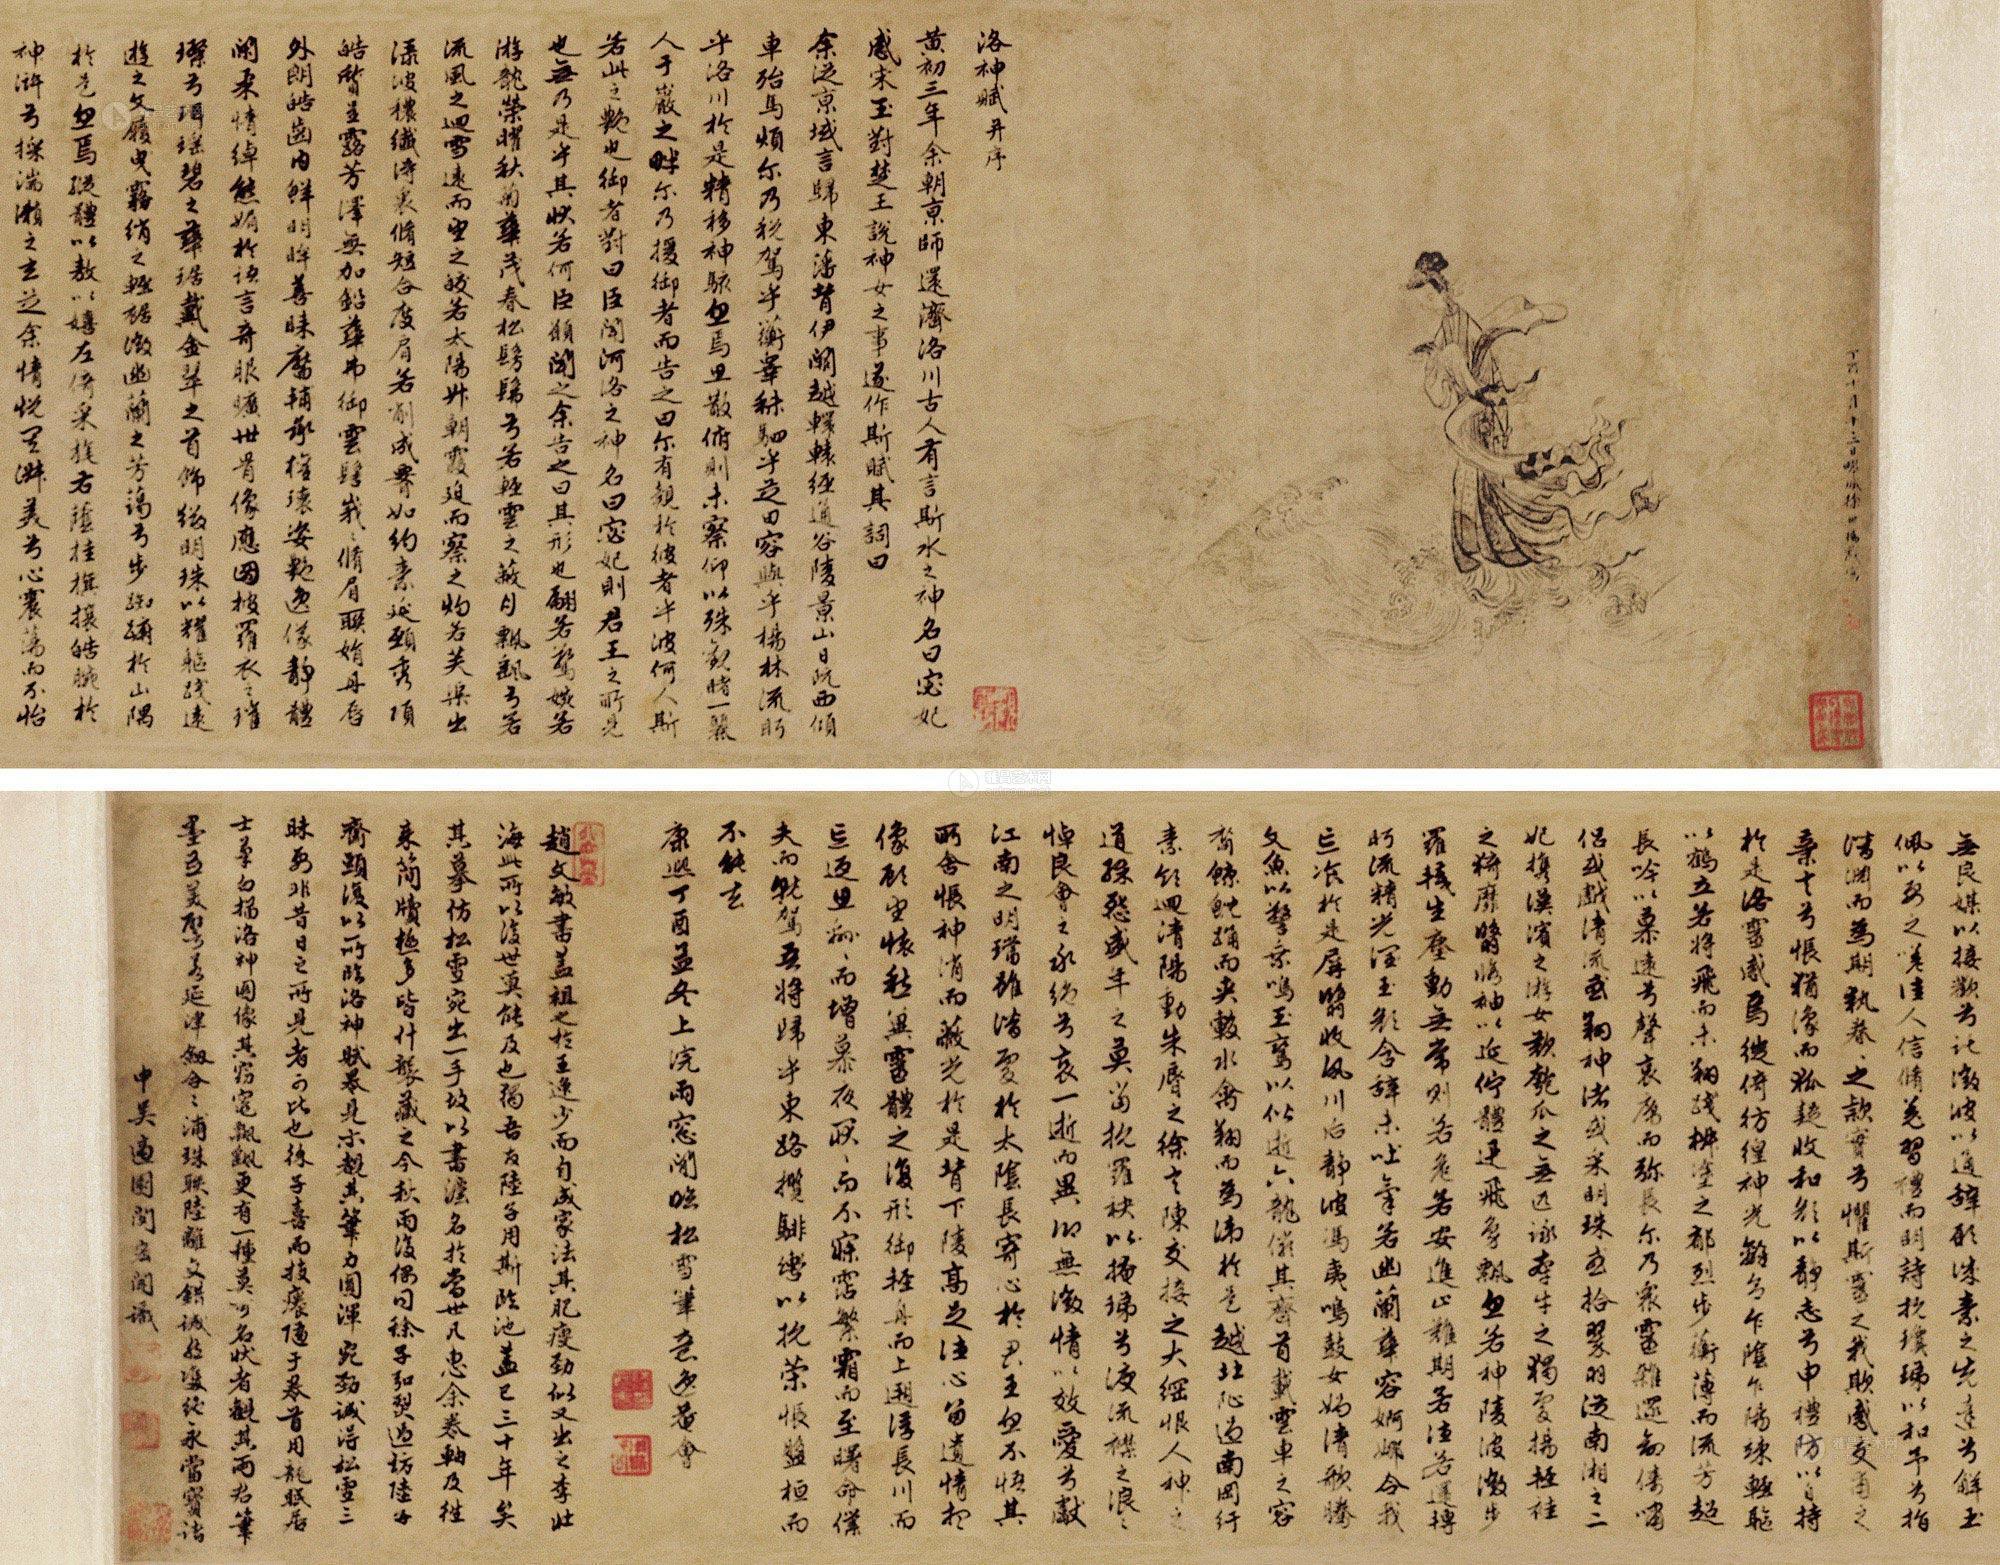 丁酉十月十
洛神賦并序
黄初三年余朝京師還濟洛川古人有言斯水之神名曰宓妃
感宋玉對楚王說神女之事遂作斯賦其詞曰
余從京域言歸東藩背伊闕越轘轅經通谷陵景山日既西傾
車殆馬煩尔乃稅駕乎蘅皋秣駟乎芝田容與乎楊林流眄
乎洛川於是精移神駭忽焉思散俯則未察仰以殊觀睹一麗
人于巖之畔尔乃援御者而告之曰尔有覿於彼者乎彼何人斯
若此之艷也御者對曰臣聞河洛之神名曰宓妃則君王之所見
也無乃是乎其狀若何臣願聞之余告之曰其形也翩若驚婉若
游龍榮曜秋菊華茂春松髣髴兮若輕雲之蔽月飄颻兮若
流風之迴雪遠而望之皎若太陽升朝霞迫而察之灼若芙蕖出
渌波穠纖得衷脩短合度肩若削成腰如約素延頸秀項
皓質呈露芳澤無加鉛華弗御雲髻峩峩脩眉聯娟丹唇
外朗皓齒内鮮明眸善睞靨輔承權瓌姿艷逸儀靜體
閑柔情綽態媚於語言奇服曠世骨像應圖披羅衣之璀
璨兮珥瑤碧之華琚戴金翠之首飾綴明珠以耀軀踐遠
遊之文履曳霧綃之輕裾微幽蘭之芳藹兮步踟躕於山隅
於是忽焉縱體以敖以嬉左倚采旄右蔭桂旗攘皓腕於
神滸兮採湍瀨之玄芝余情悅其淑美兮心震蕩而不怡
無良媒以接歡兮託微波以通辭願誠素之先達兮解玉
佩以要之嗟佳人信脩羌習禮而明詩抗瓊珶以和予兮指
潛淵而為期執眷眷之款實兮懼斯靈之我欺感交甫之
棄言兮悵猶豫而狐疑收和顏以靜志兮申禮防以自持
於是洛靈感焉徙倚彷徨神光離合乍陰乍陽竦輕軀
以鶴立若將飛而未翔踐椒塗之郁烈步蘅薄而流芳超
長吟以慕遠兮聲哀厲而彌長尔乃衆靈雜遝命儔嘯
侶或戲清流或翔神渚或采明珠或拾翠羽從南湘之二
妃携漢濱之游女歎匏瓜之無匹詠牽牛之獨處揚輕袿
之猗靡翳脩袖以延佇體迅飛鳧飄忽若神陵波微步
羅襪生塵動無常則若危若安進止難期若往若還轉
眄流精光潤玉顏含辭未吐氣若幽蘭華容婀娜令我
忘飡於是屏翳收風川后靜波馮夷鳴鼓女媧清歌騰
文魚以警乘鳴玉鸞以偕逝六龍儼其齊首載雲車之容
裔鯨鯢踊而夾轂水禽翔而為衛於是越北沚過南岡紆
素領迴清陽動朱脣以徐言陳交接之大綱恨人神之
道殊怨盛年之莫當抗羅袂以掩涕兮淚流襟之浪浪
悼良會之永絶兮哀一逝而異鄉無微情以效愛兮獻
江南之明璫雖潛處於太陰長寄心於君王忽不悟其
所舍悵神消而蔽光於是背下陵高足往心留遺情想
像顧望懷愁冀靈體之復形御輕舟而上遡浮長川而
忘返思綿綿而增慕夜耿耿而不寐霑繁霜而至曙命僕
夫而就駕吾將歸乎東路攬騑轡以抗策悵盤桓而
不能去
康熙丁酉孟冬上浣雨窓閒臨松雪筆意
趙文敏書蓋祖之於王逸少而自成家法其肥瘦勁似又出之李北
海此所以後世莫能及也獨吾友陸子用斯臨池蓋已三十年矣
其摹仿松雪宛出一手故以書法名於當世凡惠余卷軸及往
來簡牘極多皆什襲藏之今秋雨後偶同徐子過訪陸子
齋頭復以所臨洛神賦示觀其筆力圓渾宛勁誠得松雪三
昧
中吳